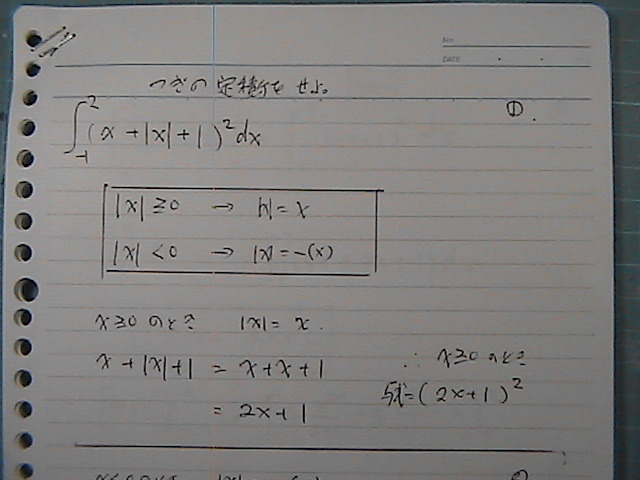 NO.
DATE
つぎの定積分をせよ。
①.
∫_{-1}^{2} (x + |x| + 1)^2 dx
|x| ≥ 0 → |x| = x
|x| < 0 → |x| = -(x)
x ≥ 0 のとき |x| = x.
x + |x| + 1 = x + x + 1
= 2x + 1
∴ x ≥ 0 のとき
与式 = (2x + 1)^2